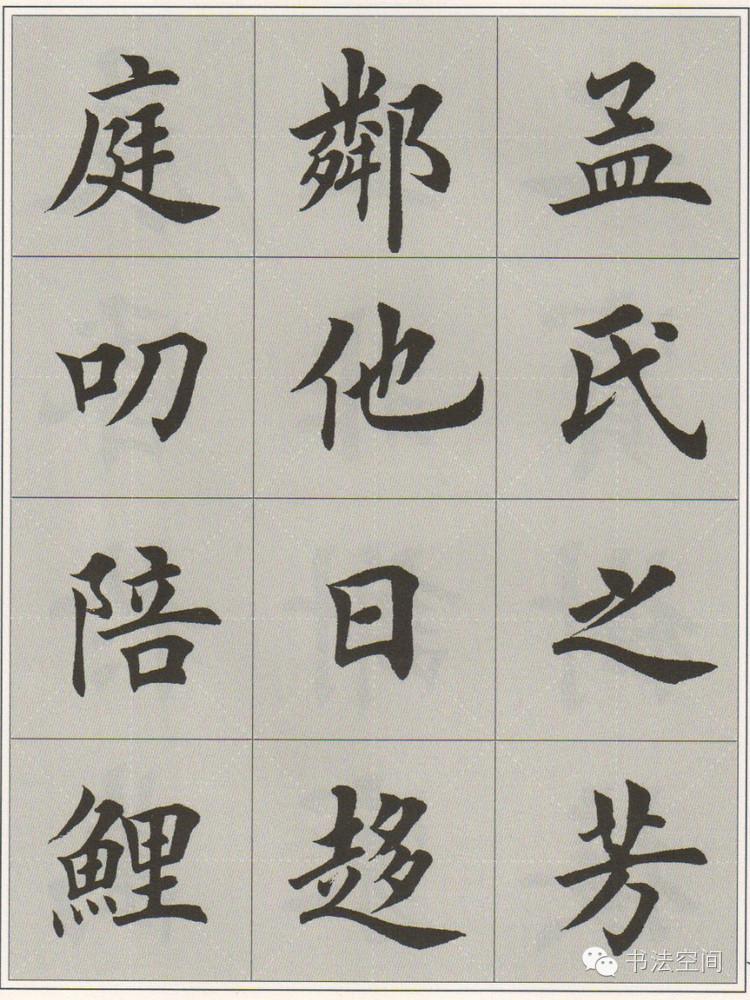 孟氏之芳
鄰他日趍
庭叨陪鯉
书法空间